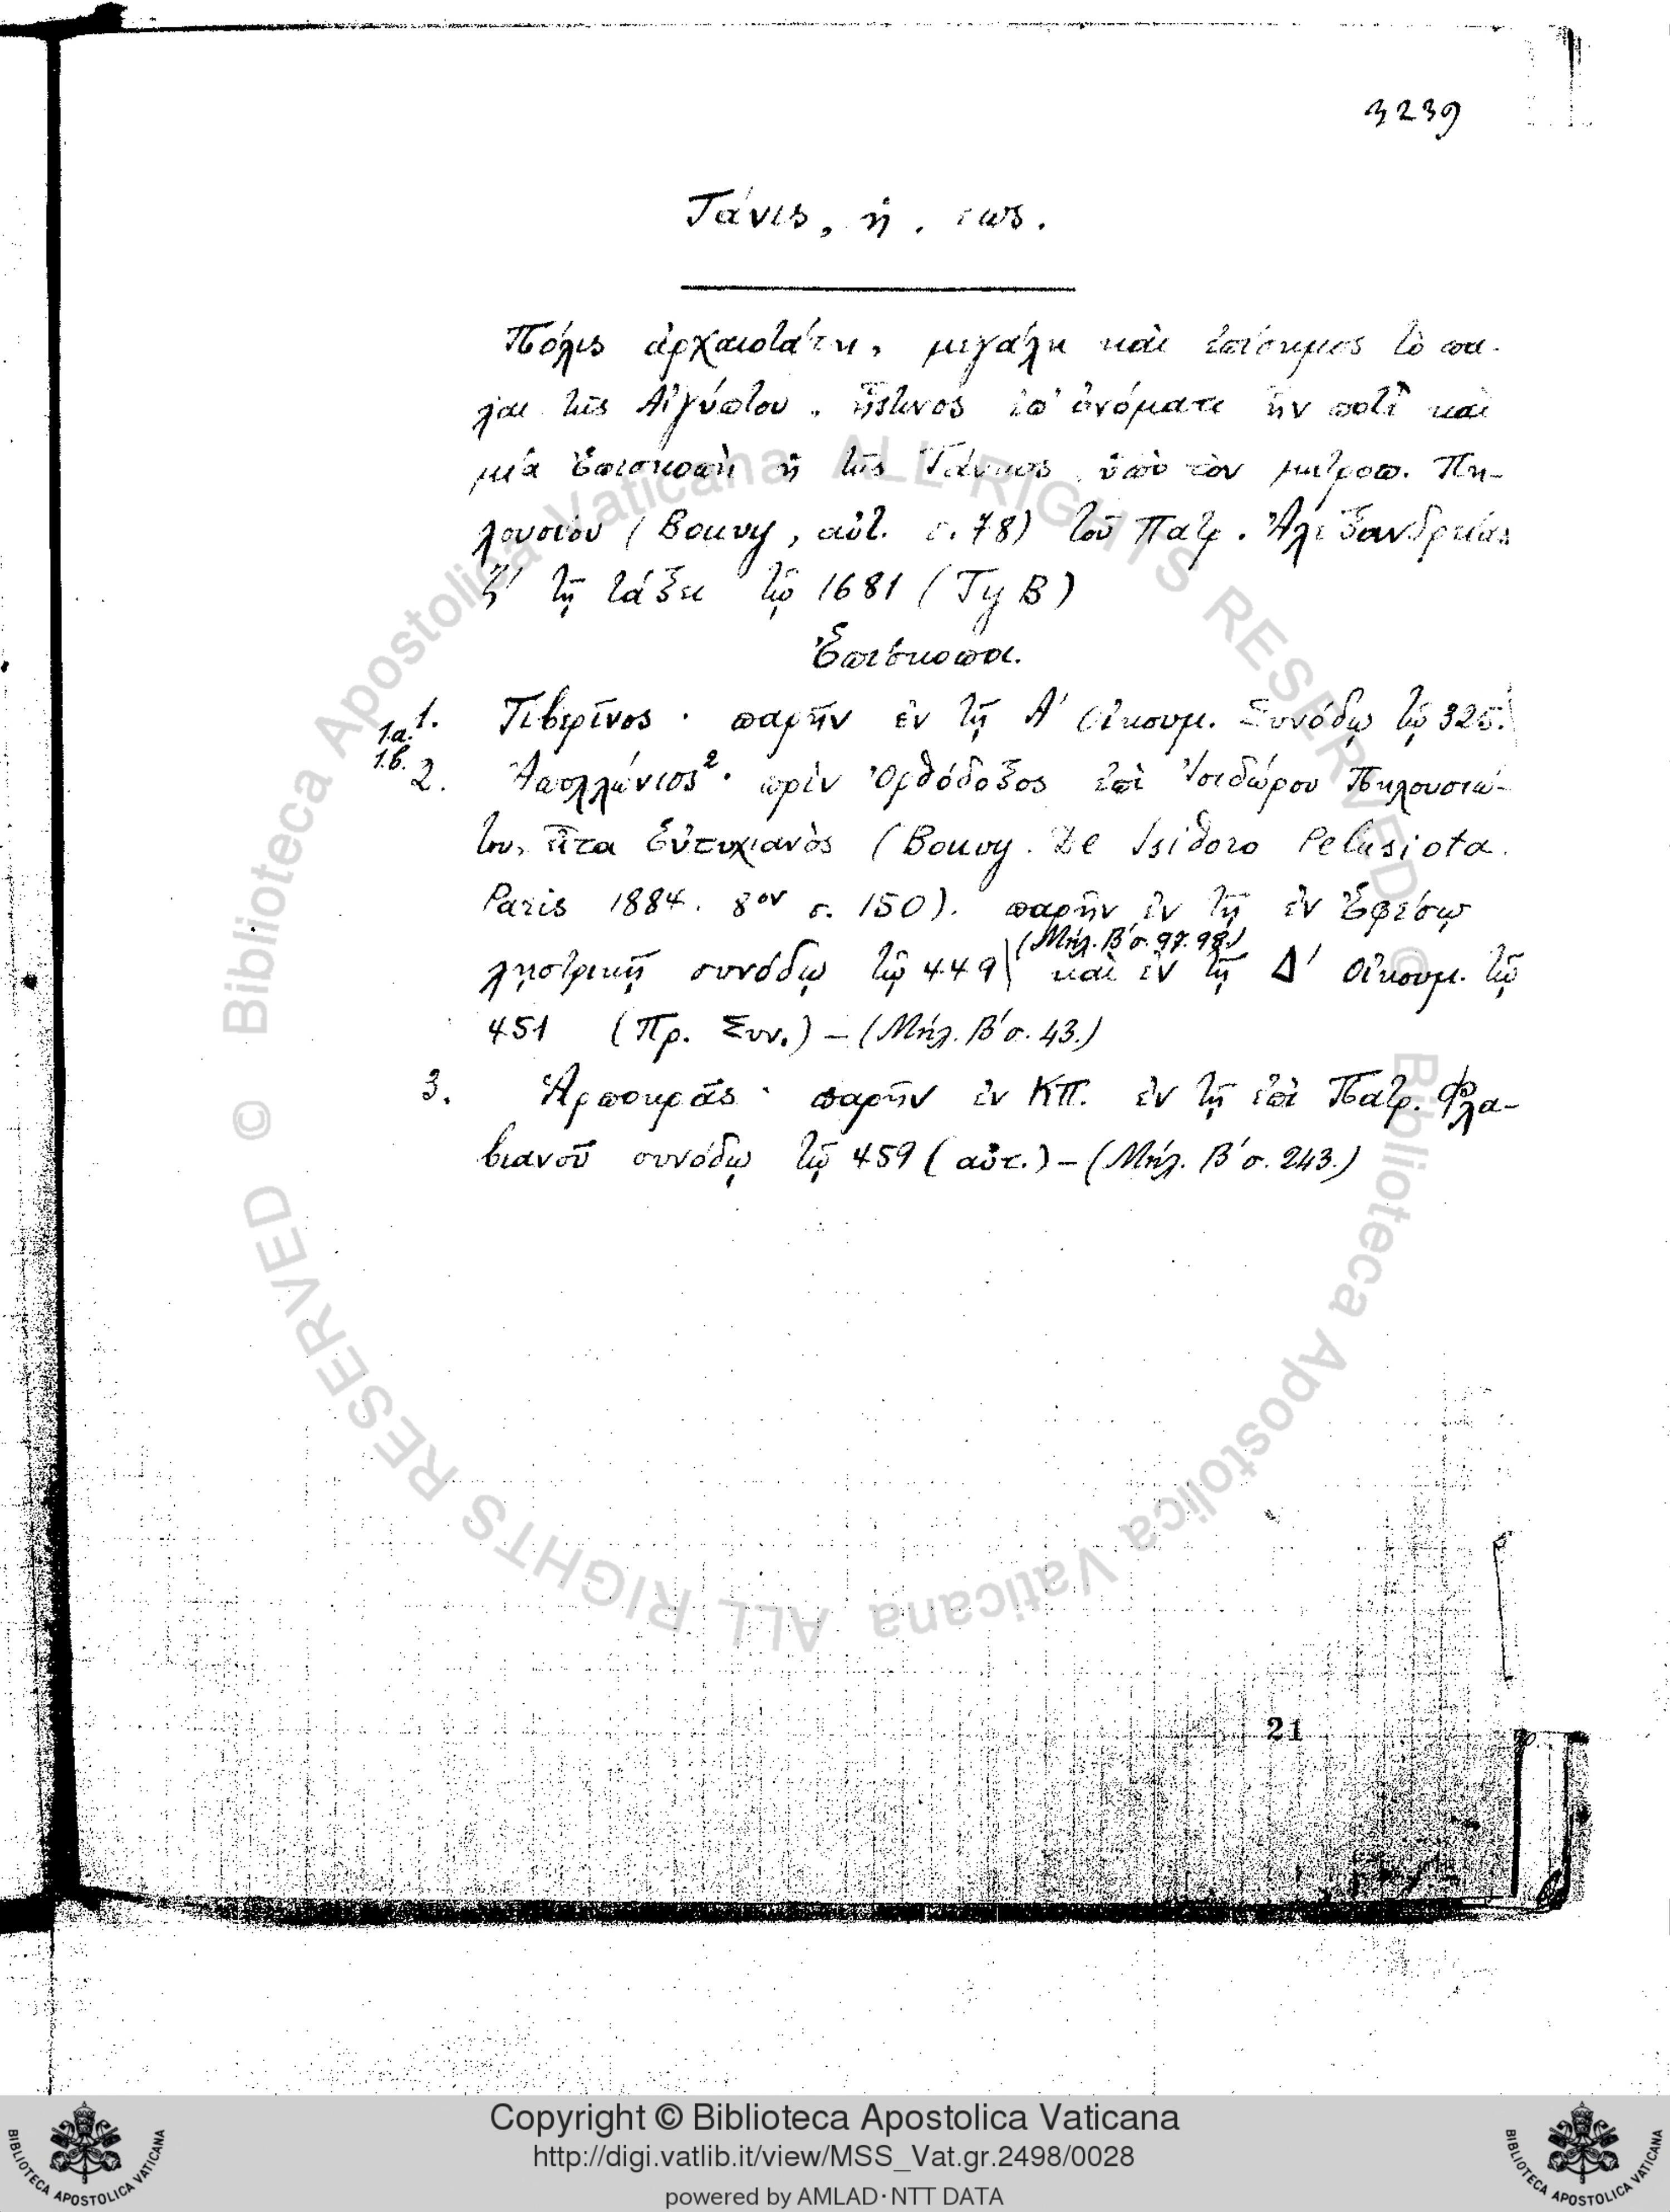 3239
Τάνις, ἡ. εως.
Πόλις ἀρχαιοτάτη, μεγάλη καὶ ἐπίσημος τὸ πά-
λαι τῆς Αἰγύπτου. ἧστινος ἐπ' ὀνόματι ἦν ποτὲ καὶ
μία Ἐπισκοπὴ ἡ τῆς Τάνεως ὑπὸ τὸν μητροπ. Πη-
λουσίου (Bouvy, αὐτ. σ. 78) τοῦ Πατρ. Ἀλεξανδρείας
τῇ τάξει τῷ 1681 (Τy Β)
Ἐπίσκοποι.
1. Τιβερῖνος · παρῆν ἐν τῇ Α' Οἰκουμ. Συνόδῳ τῷ 325.
1.α.
1.β.
2. Ἀπολλώνιος² · πρὶν Ὀρθόδοξος ἐπὶ Ἰσιδώρου Πηλουσιώ-
του, εἶτα Εὐτυχιανὸς (Bouvy. De Isidoro Pelusiota.
Paris 1884. 8ον σ. 150). παρῆν ἐν τῇ ἐν Ἐφέσῳ
(Μήλ. Β' σ. 97. 98.)
λῃστρικῇ συνόδῳ τῷ 449 καὶ ἐν τῇ Δ' Οἰκουμ. τῷ
451 (Πρ. Συν.) – (Μήλ. Β' σ. 43.)
3. Ἁρποκρᾶς · παρῆν ἐν ΚΠ. ἐν τῇ ἐπὶ Πατρ. Φλα-
βιανοῦ συνόδῳ τῷ 459 (αὐτ.) – (Μήλ. Β' σ. 243.)
21
© Biblioteca Apostolica Vaticana ALL RIGHTS RESERVED
© Biblioteca Apostolica Vaticana ALL RIGHTS RESERVED
BIBLIOTECA APOSTOLICA VATICANA
Copyright © Biblioteca Apostolica Vaticana
http://digi.vatlib.it/view/MSS_Vat.gr.2498/0028
powered by AMLAD·NTT DATA
BIBLIOTECA APOSTOLICA VATICANA